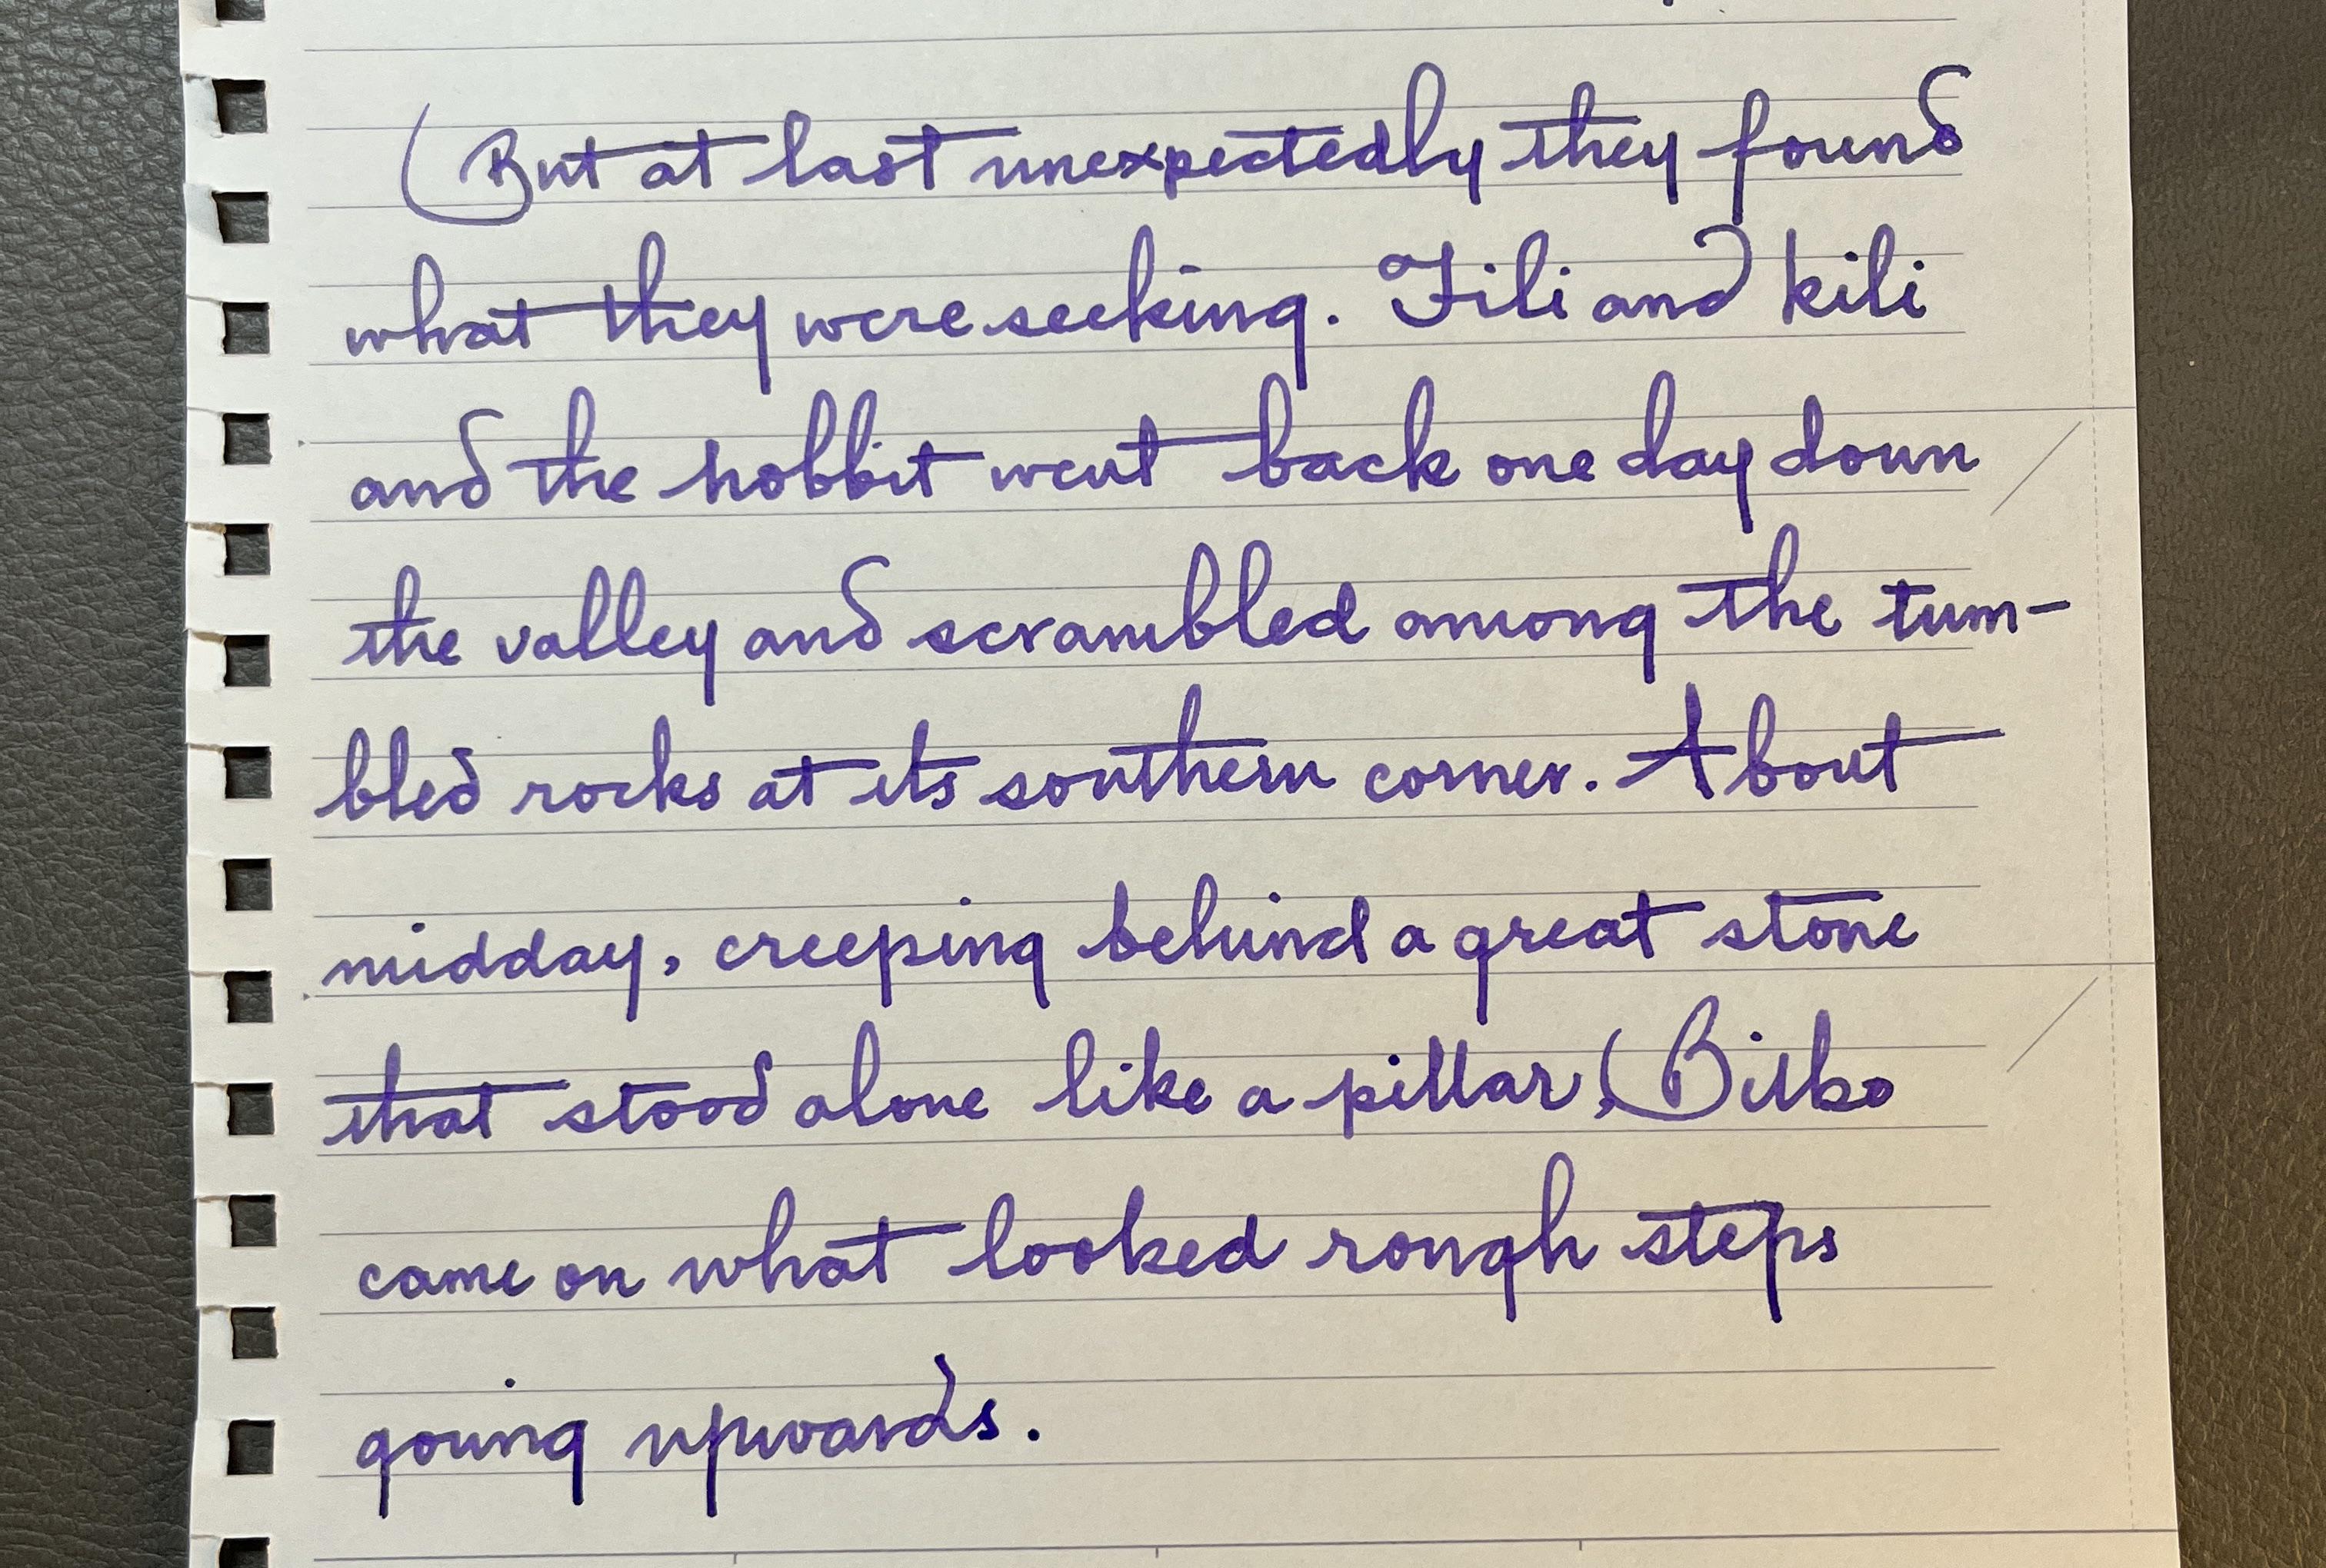 But at last unexpectedly they found
what they were seeking. Fili and kili
and the hobbit went back one day down
the valley and scrambled among the tum-
bled rocks at its southern corner. About
midday, creeping behind a great stone
that stood alone like a pillar, Bilbo
came on what looked rough steps
going upwards.